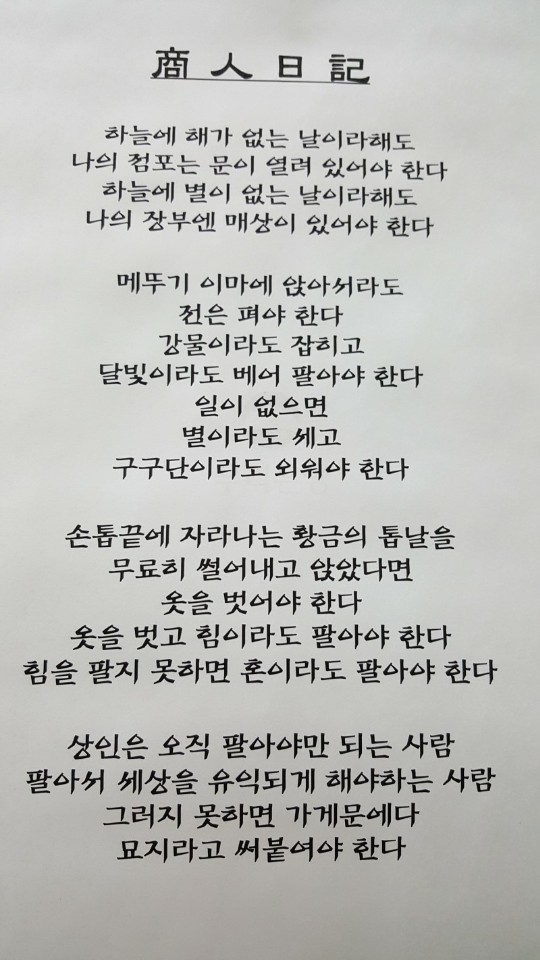 商人日記
하늘에 해가 없는 날이라해도
나의 점포는 문이 열려 있어야 한다
하늘에 별이 없는 날이라해도
나의 장부엔 매상이 있어야 한다
메뚜기 이마에 앉아서라도
전은 펴야 한다
강물이라도 잡히고
달빛이라도 베어 팔아야 한다
일이 없으면
별이라도 세고
구구단이라도 외워야 한다
손톱끝에 자라나는 황금의 톱날을
무료히 썰어내고 앉았다면
옷을 벗어야 한다
옷을 벗고 힘이라도 팔아야 한다
힘을 팔지 못하면 혼이라도 팔아야 한다
상인은 오직 팔아야만 되는 사람
팔아서 세상을 유익되게 해야하는 사람
그러지 못하면 가게문에다
묘지라고 써붙여야 한다